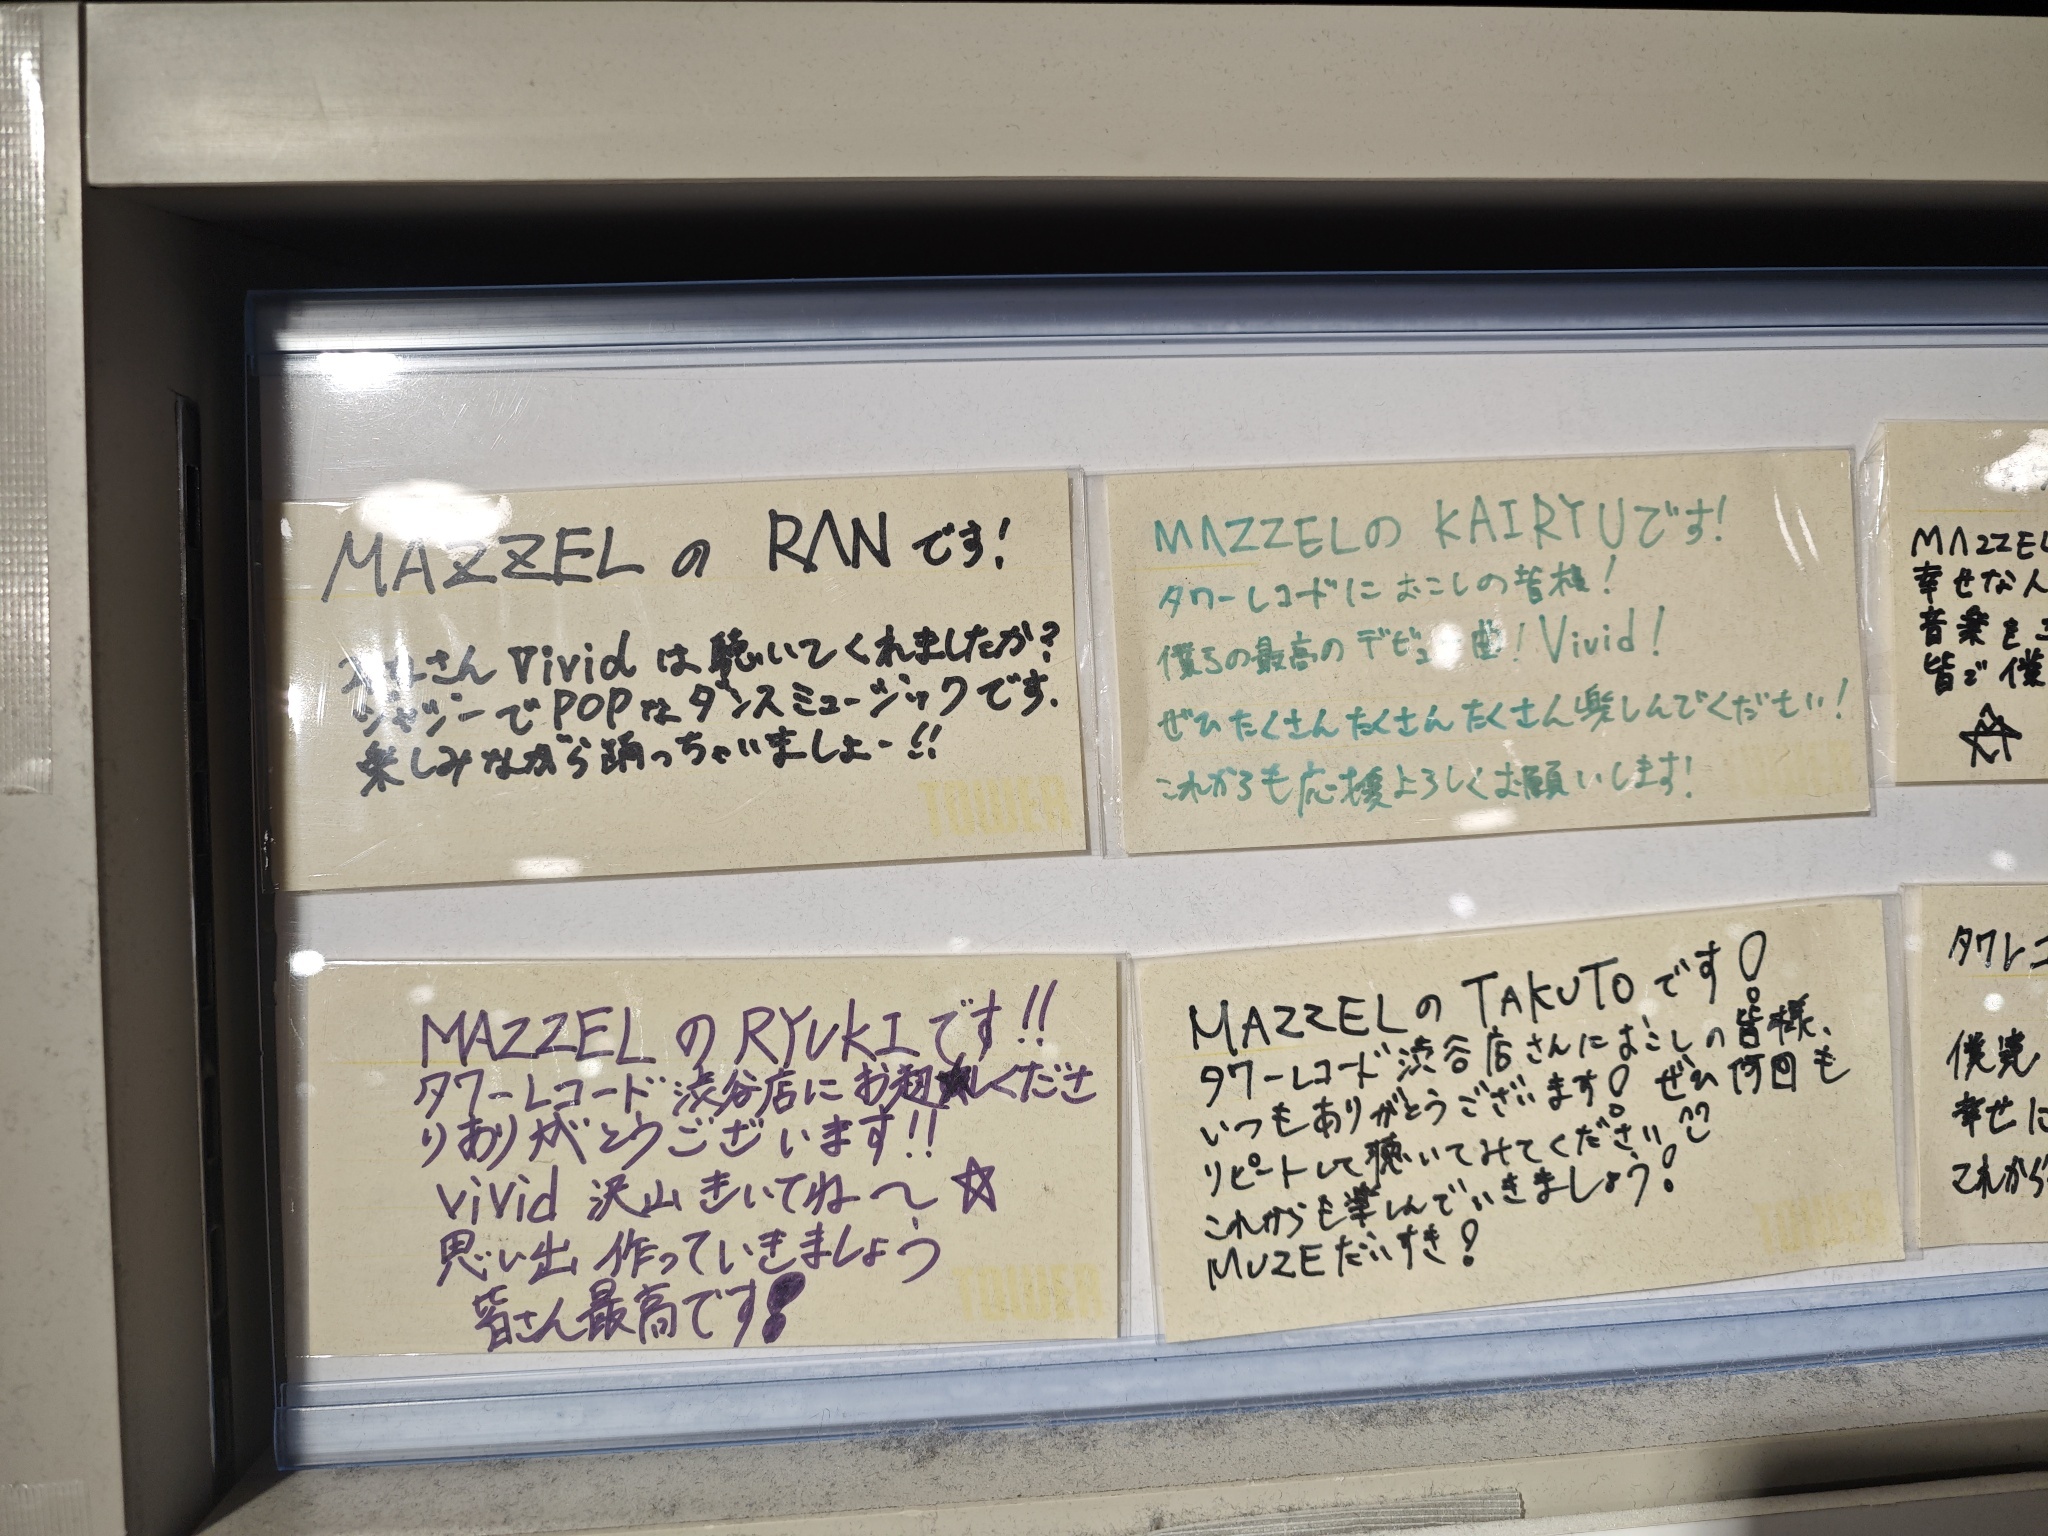 MAZZELの RANです!
さん Vividは聴いてくれましたか?
ジャジーでPOPなダンスミュージックです.
楽しみながら踊っちゃいましょー!!
TOWER
MAZZELの KAIRYUです!
タワーレコードにおこしの皆様!
僕らの最高のデビュー曲! Vivid!
ぜひたくさんたくさんたくさん楽しんでください!
これからも応援よろしくお願いします!
MAZZEL
幸せな人
音楽を
皆で僕
MAZZELのRYUKIです!!
タワーレコード渋谷店にお越しくださ
りありがとうございます!!
vivid 沢山きいてね〜☆
思い出作っていきましょう
皆さん最高です!
TOWER
MAZZELのTAKUTOです!
タワーレコード渋谷店さんにおこしの皆様、
いつもありがとうございます! ぜひ何回も
リピートして聴いてみてください
これからも楽しんでいきましょう!
MUZEだいすき!
TOWER
タワレコ
僕達
幸せに
これから